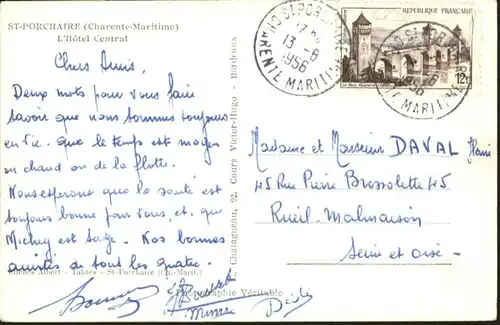 ST-PORCHAIRE (Charente-Maritime)
L'Hôtel Central
Chers Amis,
Deux mots pour vous faire
savoir que nous sommes toujours
en vie. Que le temps est moyen
ou chaud ou de la flotte.
Nous esperons que la santé est
toujours bonne pour vous, et, que
Mickey est sage. Nos bonnes
amitiés de tout les quatre.
Albert - Tabacs - St-Porchaire (Ch.-Marit.)
Photographie Véritable
Chatagneau, 22, Cours Victor-Hugo - Bordeaux
ST PORCHAIRE
13 - 8
1956
CHARENTE MARITIME
REPUBLIQUE FRANÇAISE
12F
1956
MARITIME
Madame et Monsieur DAVAL
45 Rue Pierre Brossolette 45
Rueil-Malmaison
Seine et oise